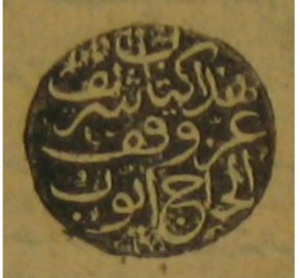 هذا كتاب شريف
عن وقف
الحاج ايوب